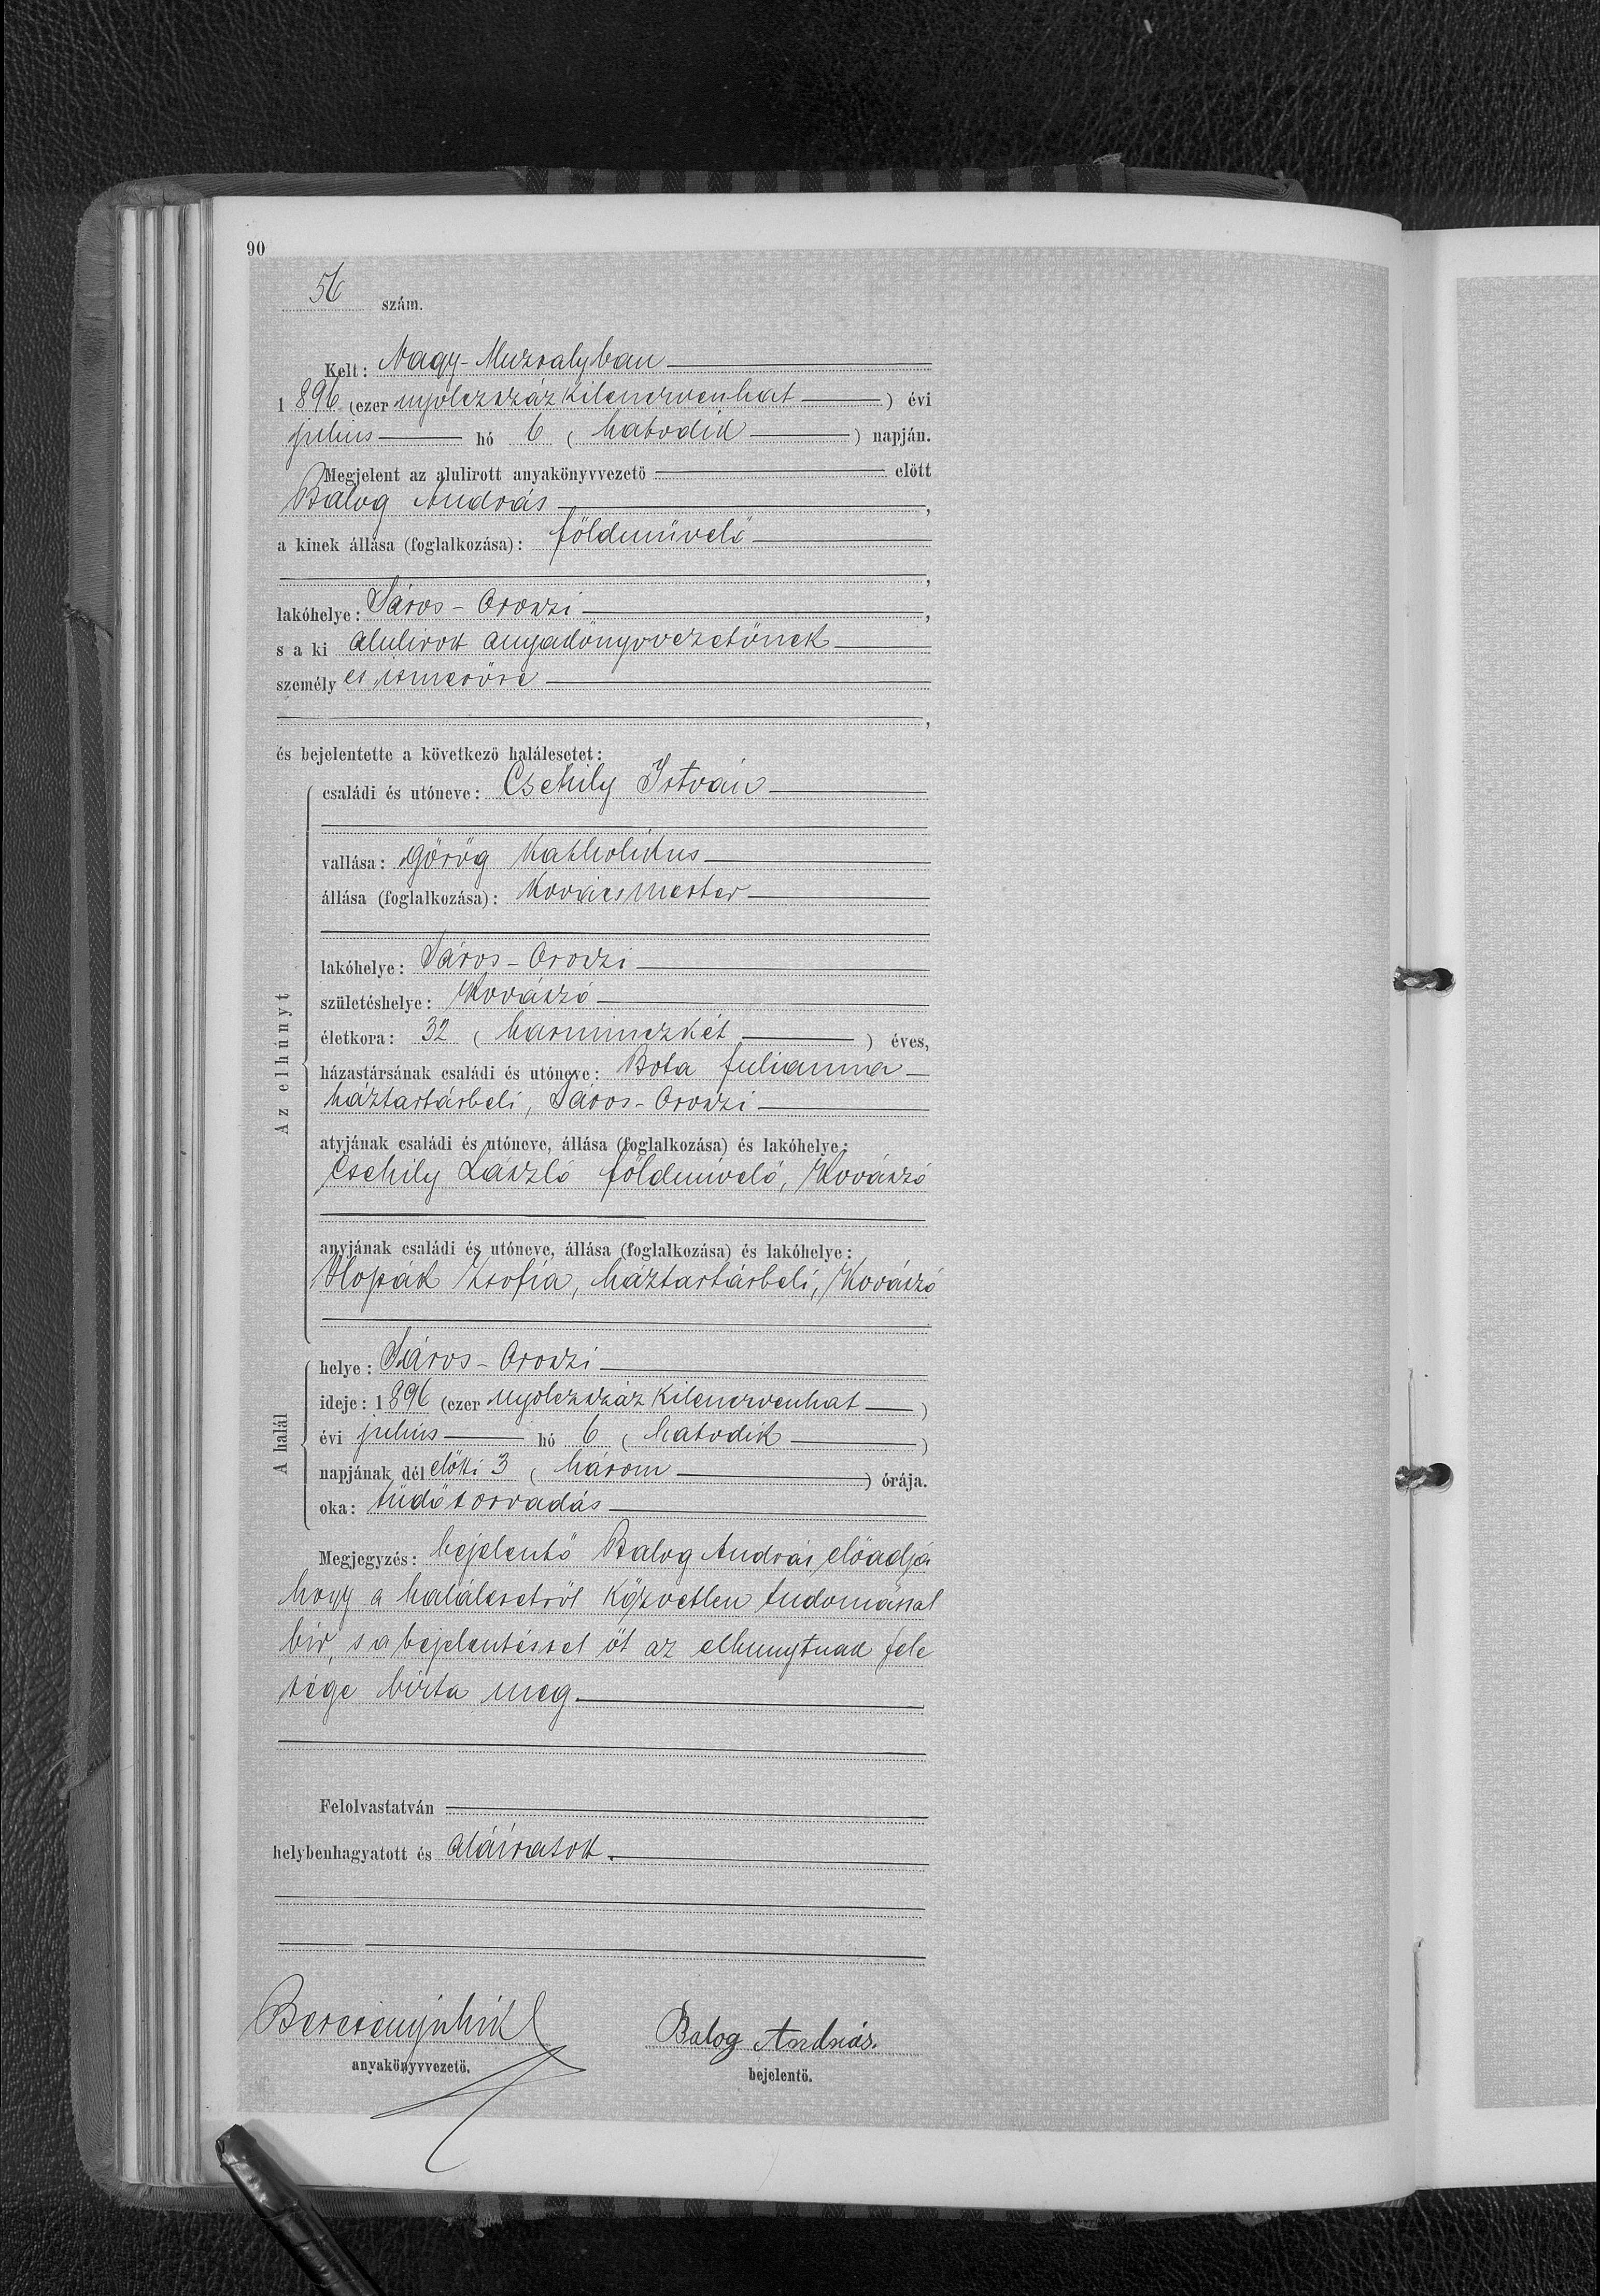 90
56 szám.
Kelt: Nagy-Muzsalyban
1896 (ezer nyolczszázkilenczvenhat) évi
julius hó 6 (hatodik) napján.
Megjelent az alulirott anyakönyvvezető előtt
Balog András,
a kinek állása (foglalkozása): földmüvelő
,
lakóhelye: Sáros-Oroszi,
s a ki alulirott anyakönyvvezetőnek
személyes ismerőse
,
és bejelentette a következő halálesetet:
Az elhúnyt
családi és utóneve: Csehily István
vallása: görög katholikus
állása (foglalkozása): kovácsmester
lakóhelye: Sáros-Oroszi
születéshelye: Kovászó
életkora: 32 (harminczkét) éves,
házastársának családi és utóneve: Bota Julianna
háztartásbeli, Sáros-Oroszi
atyjának családi és utóneve, állása (foglalkozása) és lakóhelye:
Csehily László földmüvelő, Kovászó
anyjának családi és utóneve, állása (foglalkozása) és lakóhelye:
Zsofia, háztartásbeli, Kovászó
A halál
helye: Sáros-Oroszi
ideje: 1896 (ezer nyolczszázkilenczvenhat)
évi julius hó 6 (hatodik)
napjának délelőtti 3 (három) órája.
oka: tüdősorvadás
Megjegyzés: bejelentő Balog András előadja
hogy a halálesetröl közvetlen tudomással
bir, s a bejelentéssel öt az elhunytnak fele
sége bizta meg.
Felolvastatván
helybenhagyatott és aláiratott.
Balog András.
anyakönyvvezető.
bejelentő.